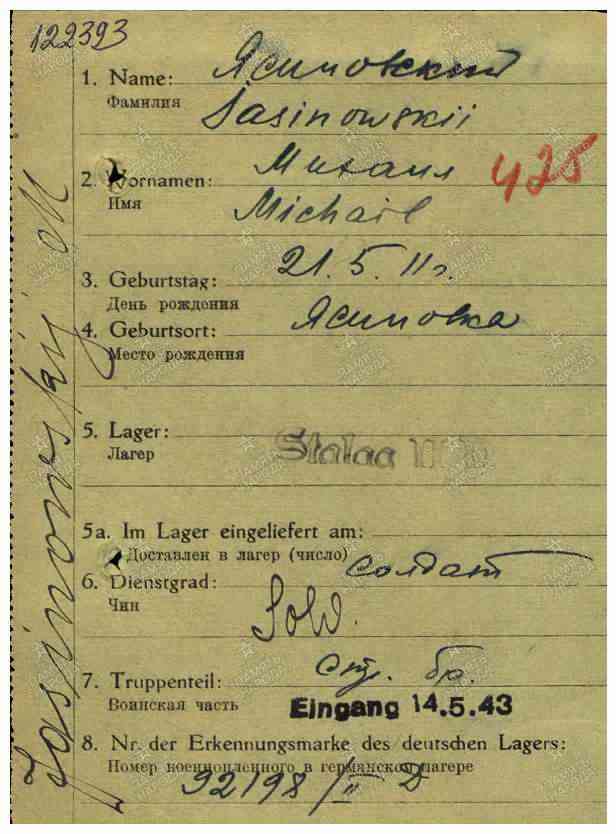 122393
Ясиновский
1. Name:
Фамилия
Jasinowskii
Михаил
2. Vornamen:
Имя
425
Michail
21.5.11 г.
3. Geburtstag:
День рождения
Ясиновка
4. Geburtsort:
Место рождения
5. Lager:
Лагерь
Stalag
5a. Im Lager eingeliefert am:
Доставлен в лагер (число)
солдат
6. Dienstgrad:
Чин
Sold.
7. Truppenteil:
бр.
Воинская часть
Eingang 14.5.43
8. Nr. der Erkennungsmarke des deutschen Lagers:
Номер военнопленного в германском лагере
92198/II D
Jasinowskij M